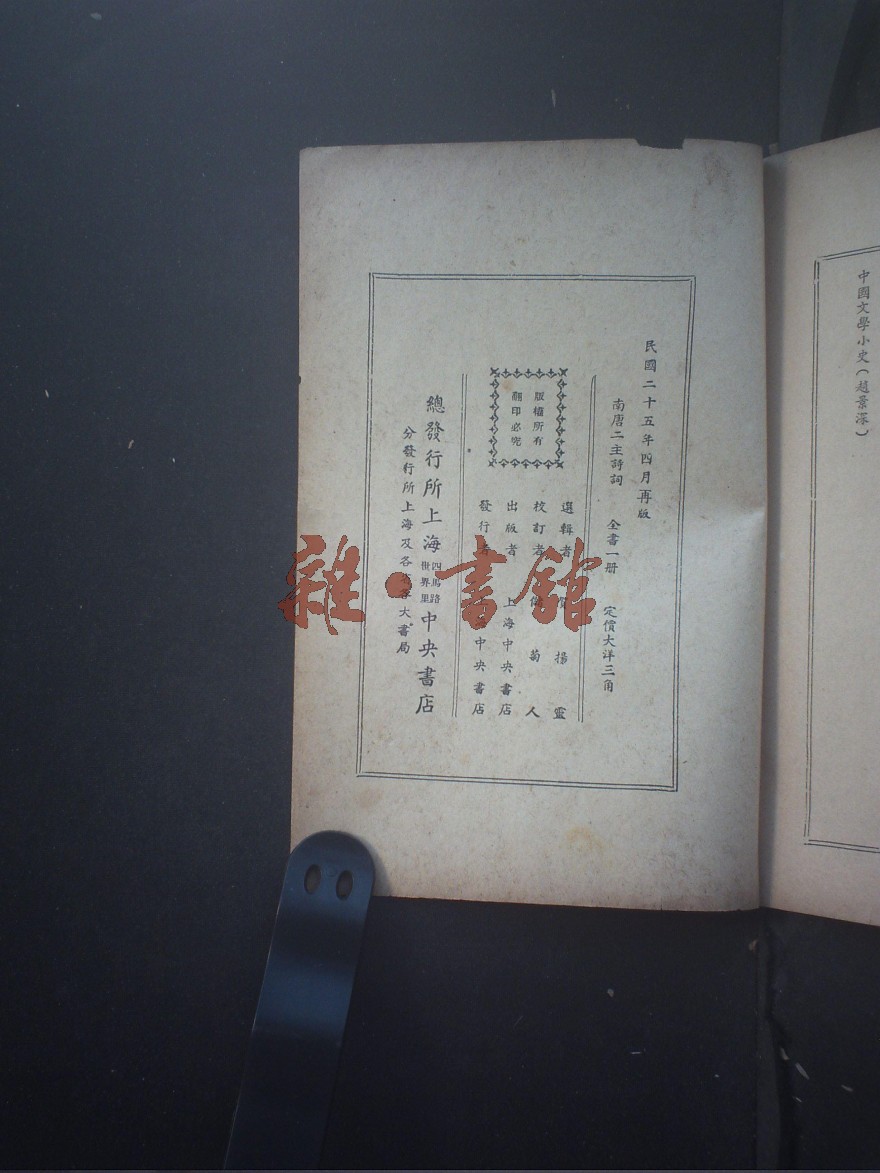 中國文學小史（趙景深）
民國二十五年四月再版
南唐二主詩詞 全書一册 定價大洋三角
版權所有
翻印必究
選輯者 賀揚靈
校訂者 儲菊人
出版者 上海中央書店
發行者 中央書店
總發行所上海四馬路世界里中央書店
分發行所上海及各大書局
雜·書館